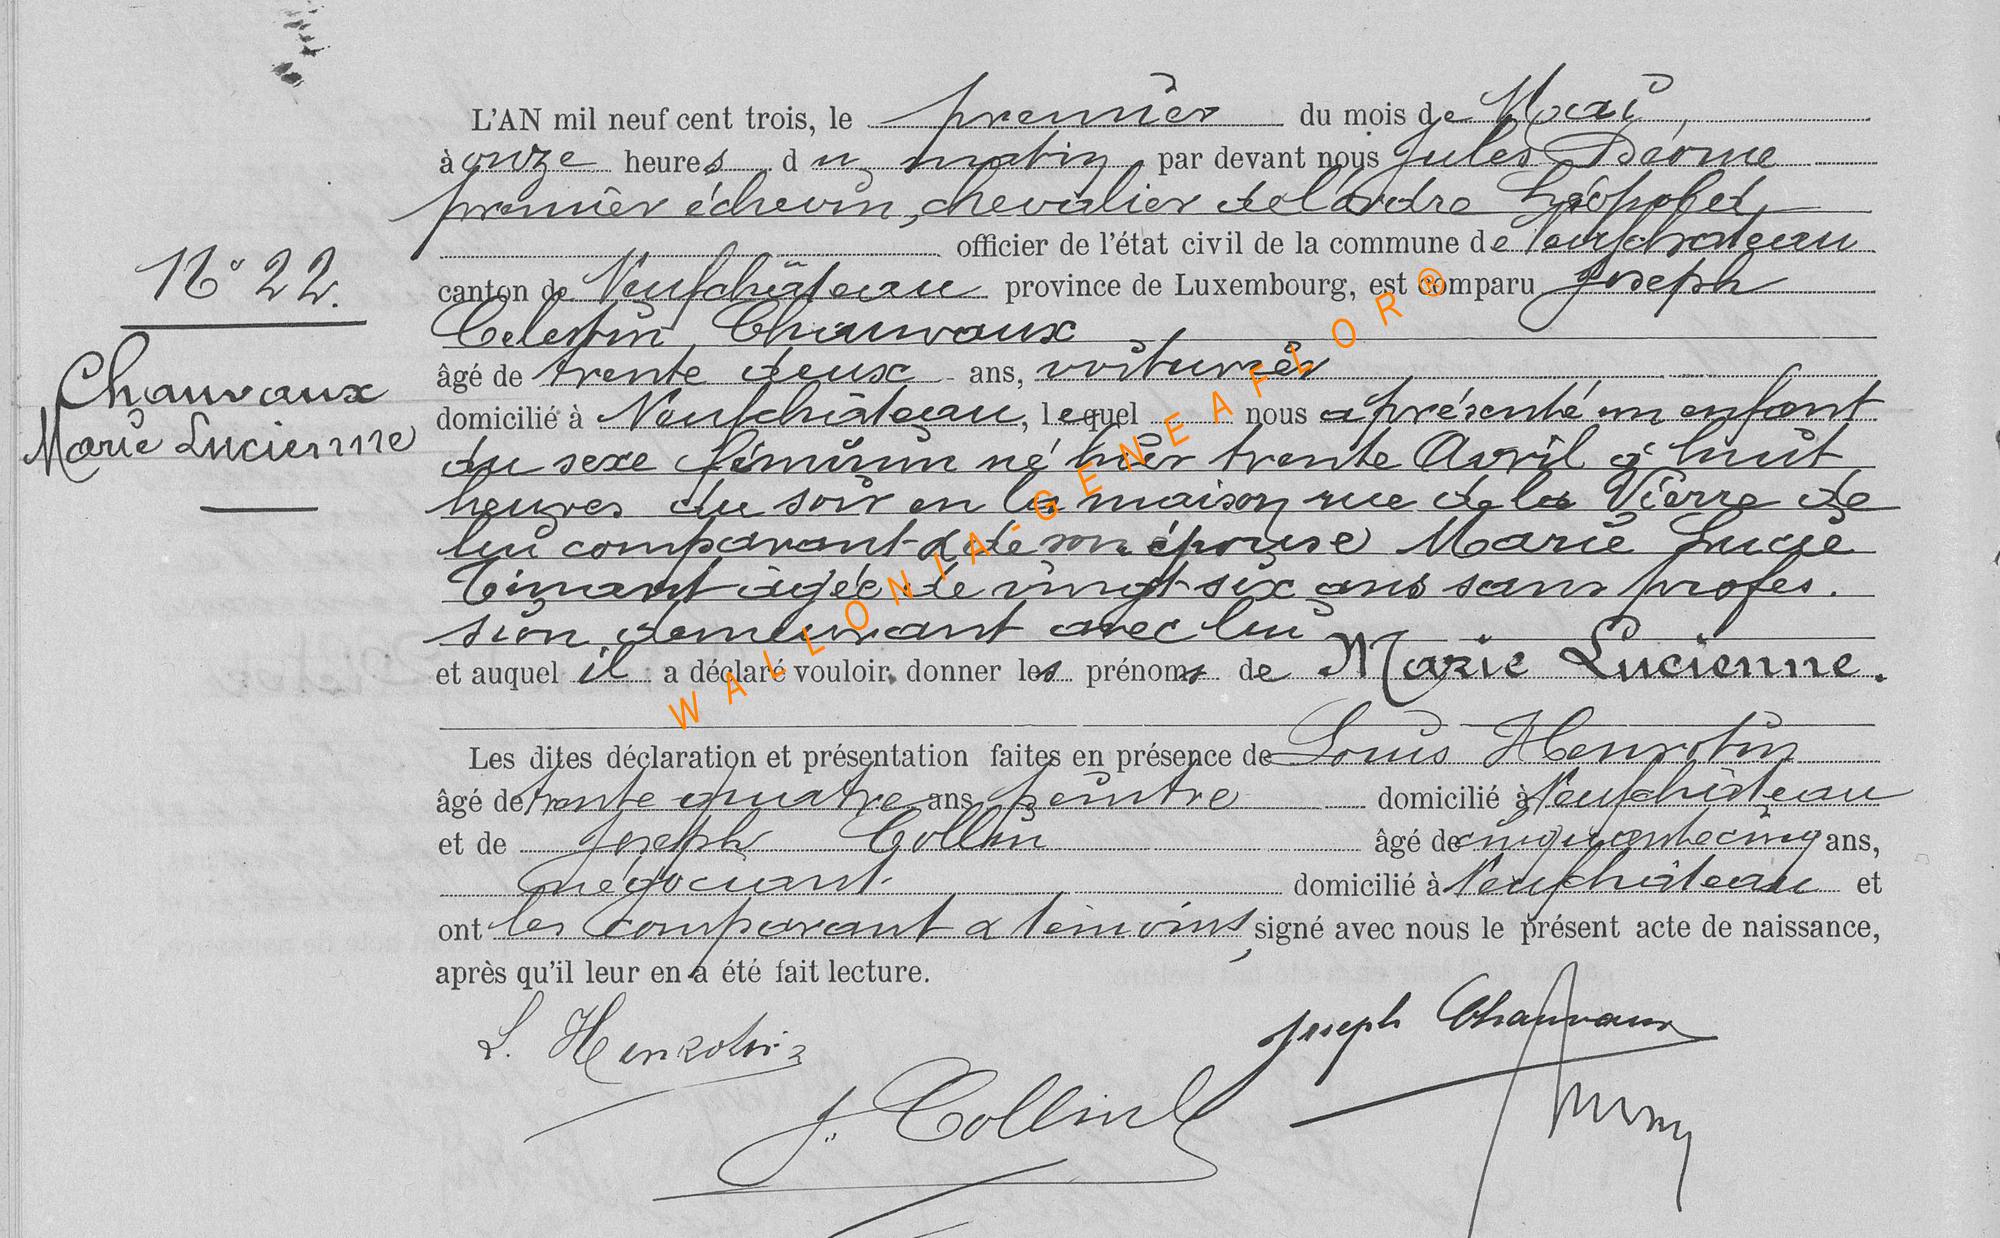 N° 22.
Chauvaux
Marie Lucienne
L'AN mil neuf cent trois, le premier du mois de Mai,
à onze heures du matin, par devant nous Jules
premier échevin, chevalier de l'ordre Léopold,
officier de l'état civil de la commune de Neufchâteau
canton de Neufchâteau province de Luxembourg, est comparu Joseph
Celestin Chauvaux
âgé de trente deux ans, voiturier
domicilié à Neufchâteau, lequel nous a présenté un enfant
du sexe féminin né hier trente Avril à huit
heures du soir en la maison rue de la Vierre de
lui comparant & de son épouse Marie Lucie
Timant âgée de vingt-six ans sans profes.
sion, demeurant avec lui
et auquel il a déclaré vouloir donner les prénoms de Marie Lucienne.
Les dites déclaration et présentation faites en présence de Louis Henrotin
âgé de trente quatre ans, peintre domicilié à Neufchâteau
et de Joseph Collin âgé de cinquante cinq ans,
négociant. domicilié à Neufchâteau et
ont les comparant & témoins, signé avec nous le présent acte de naissance,
après qu'il leur en a été fait lecture.
L. Henrotin
Joseph Chauvaux
J. Collin
WALLONIA-GENEAFLOR®